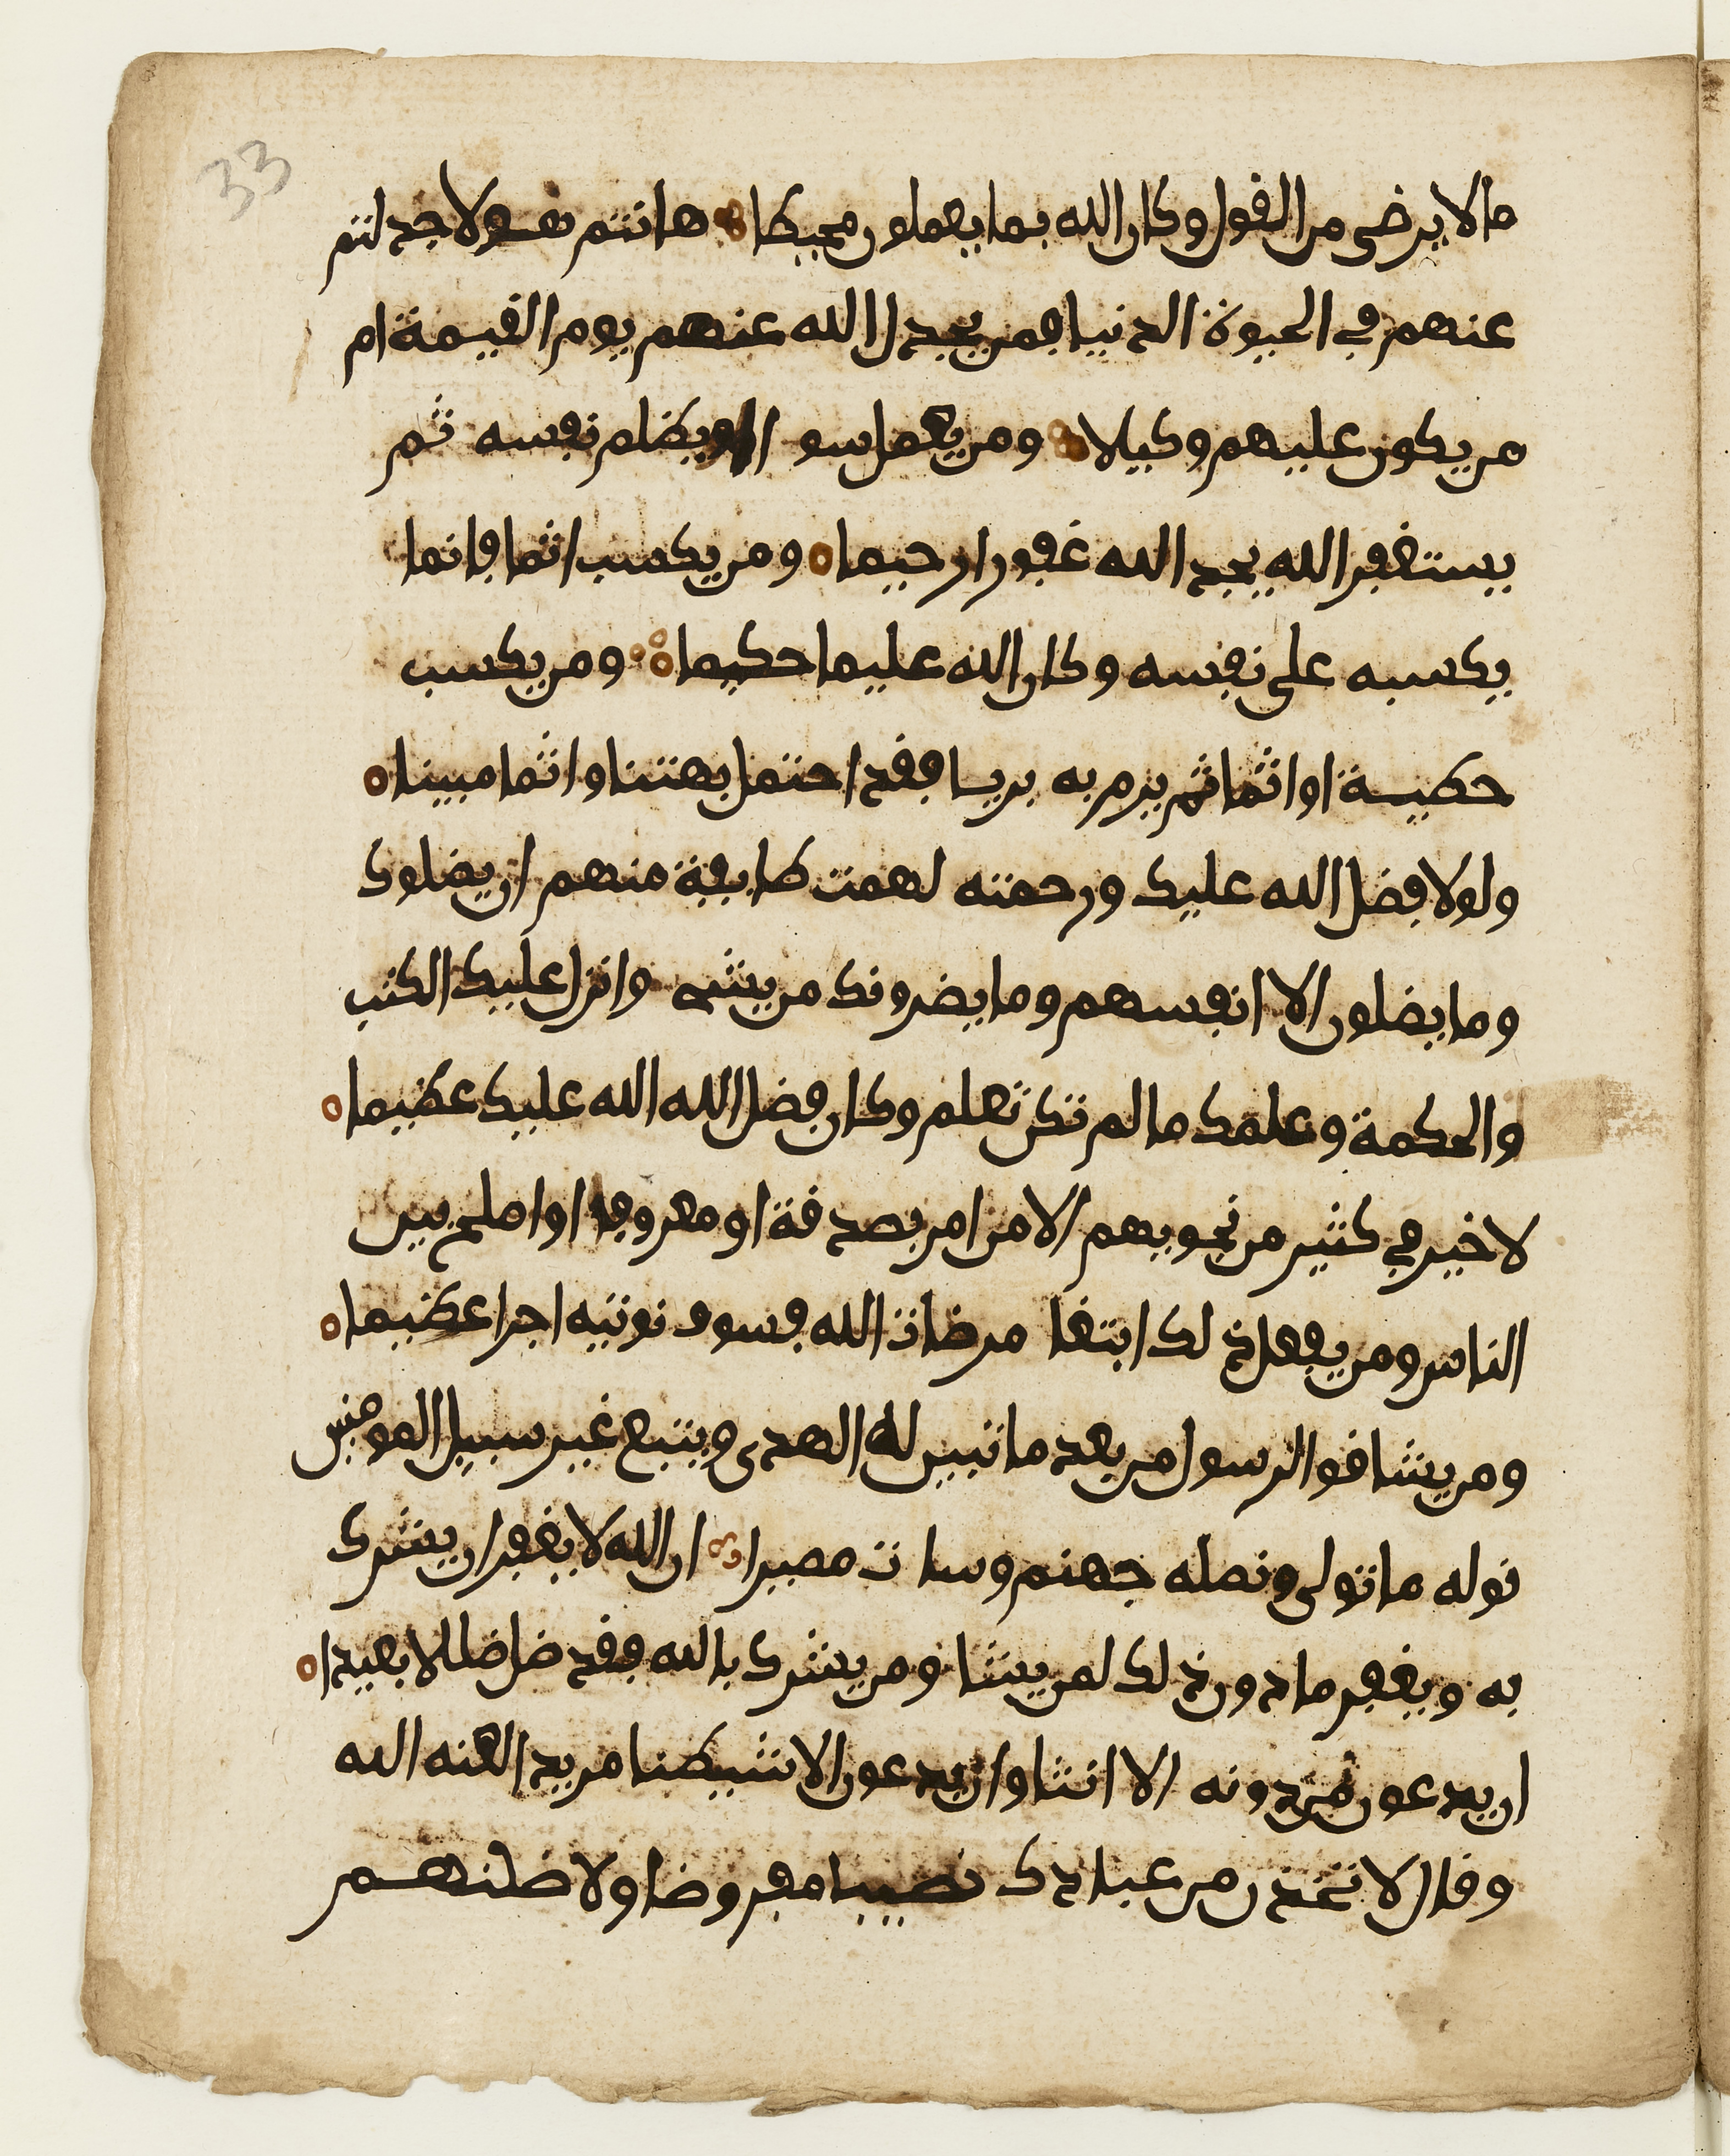 33
ما لا يرضى من القول وكان الله بما يعملون محيطا هانتم هولا جدلتم
عنهم في الحيوة الدنيا فمن يجدل الله عنهم يوم القيمة ام
من يكون عليهم وكيلا ومن يعمل سو ا او يظلم نفسه ثم
يستغفر الله يجد الله غفورا رحيما ومن يكسب اثما فانما
يكسبه على نفسه وكان الله عليما حكيما ومن يكسب
خطيية او اثما ثم يرم به بريا فقد احتمل بهتنا واثما مبينا
ولولا فضل الله عليك ورحمته لهمت طايفة منهم ان يضلوك
وما يضلون الا انفسهم وما يضرونك من شي وانزل عليك الكتب
والحكمة وعلمك ما لم تكن تعلم وكان فضل الله الله عليك عظيما
لا خير في كثير من نجويهم الا من امر بصدقة او معروف او اصلح بين
الناس ومن يفعل ذلك ابتغا مرضات الله فسوف نوتيه اجرا عظيما
ومن يشاقو الرسول من بعد ما تبين له الهدى ويتبع غير سبيل المومنين
نوله ما تولى ونصله جهنم وسا ت مصيرا ان الله لا يغفر ان يشرك
به ويغفر ما دون ذلك لمن يشا ومن يشرك بالله فقد ضل ضللا بعيدا
ان يدعون من دونه الا انثا وان يدعون الا شيطنا مريدا لعنه الله
وقال لاتخذن من عبادك نصيبا مفروضا ولاضلنهم